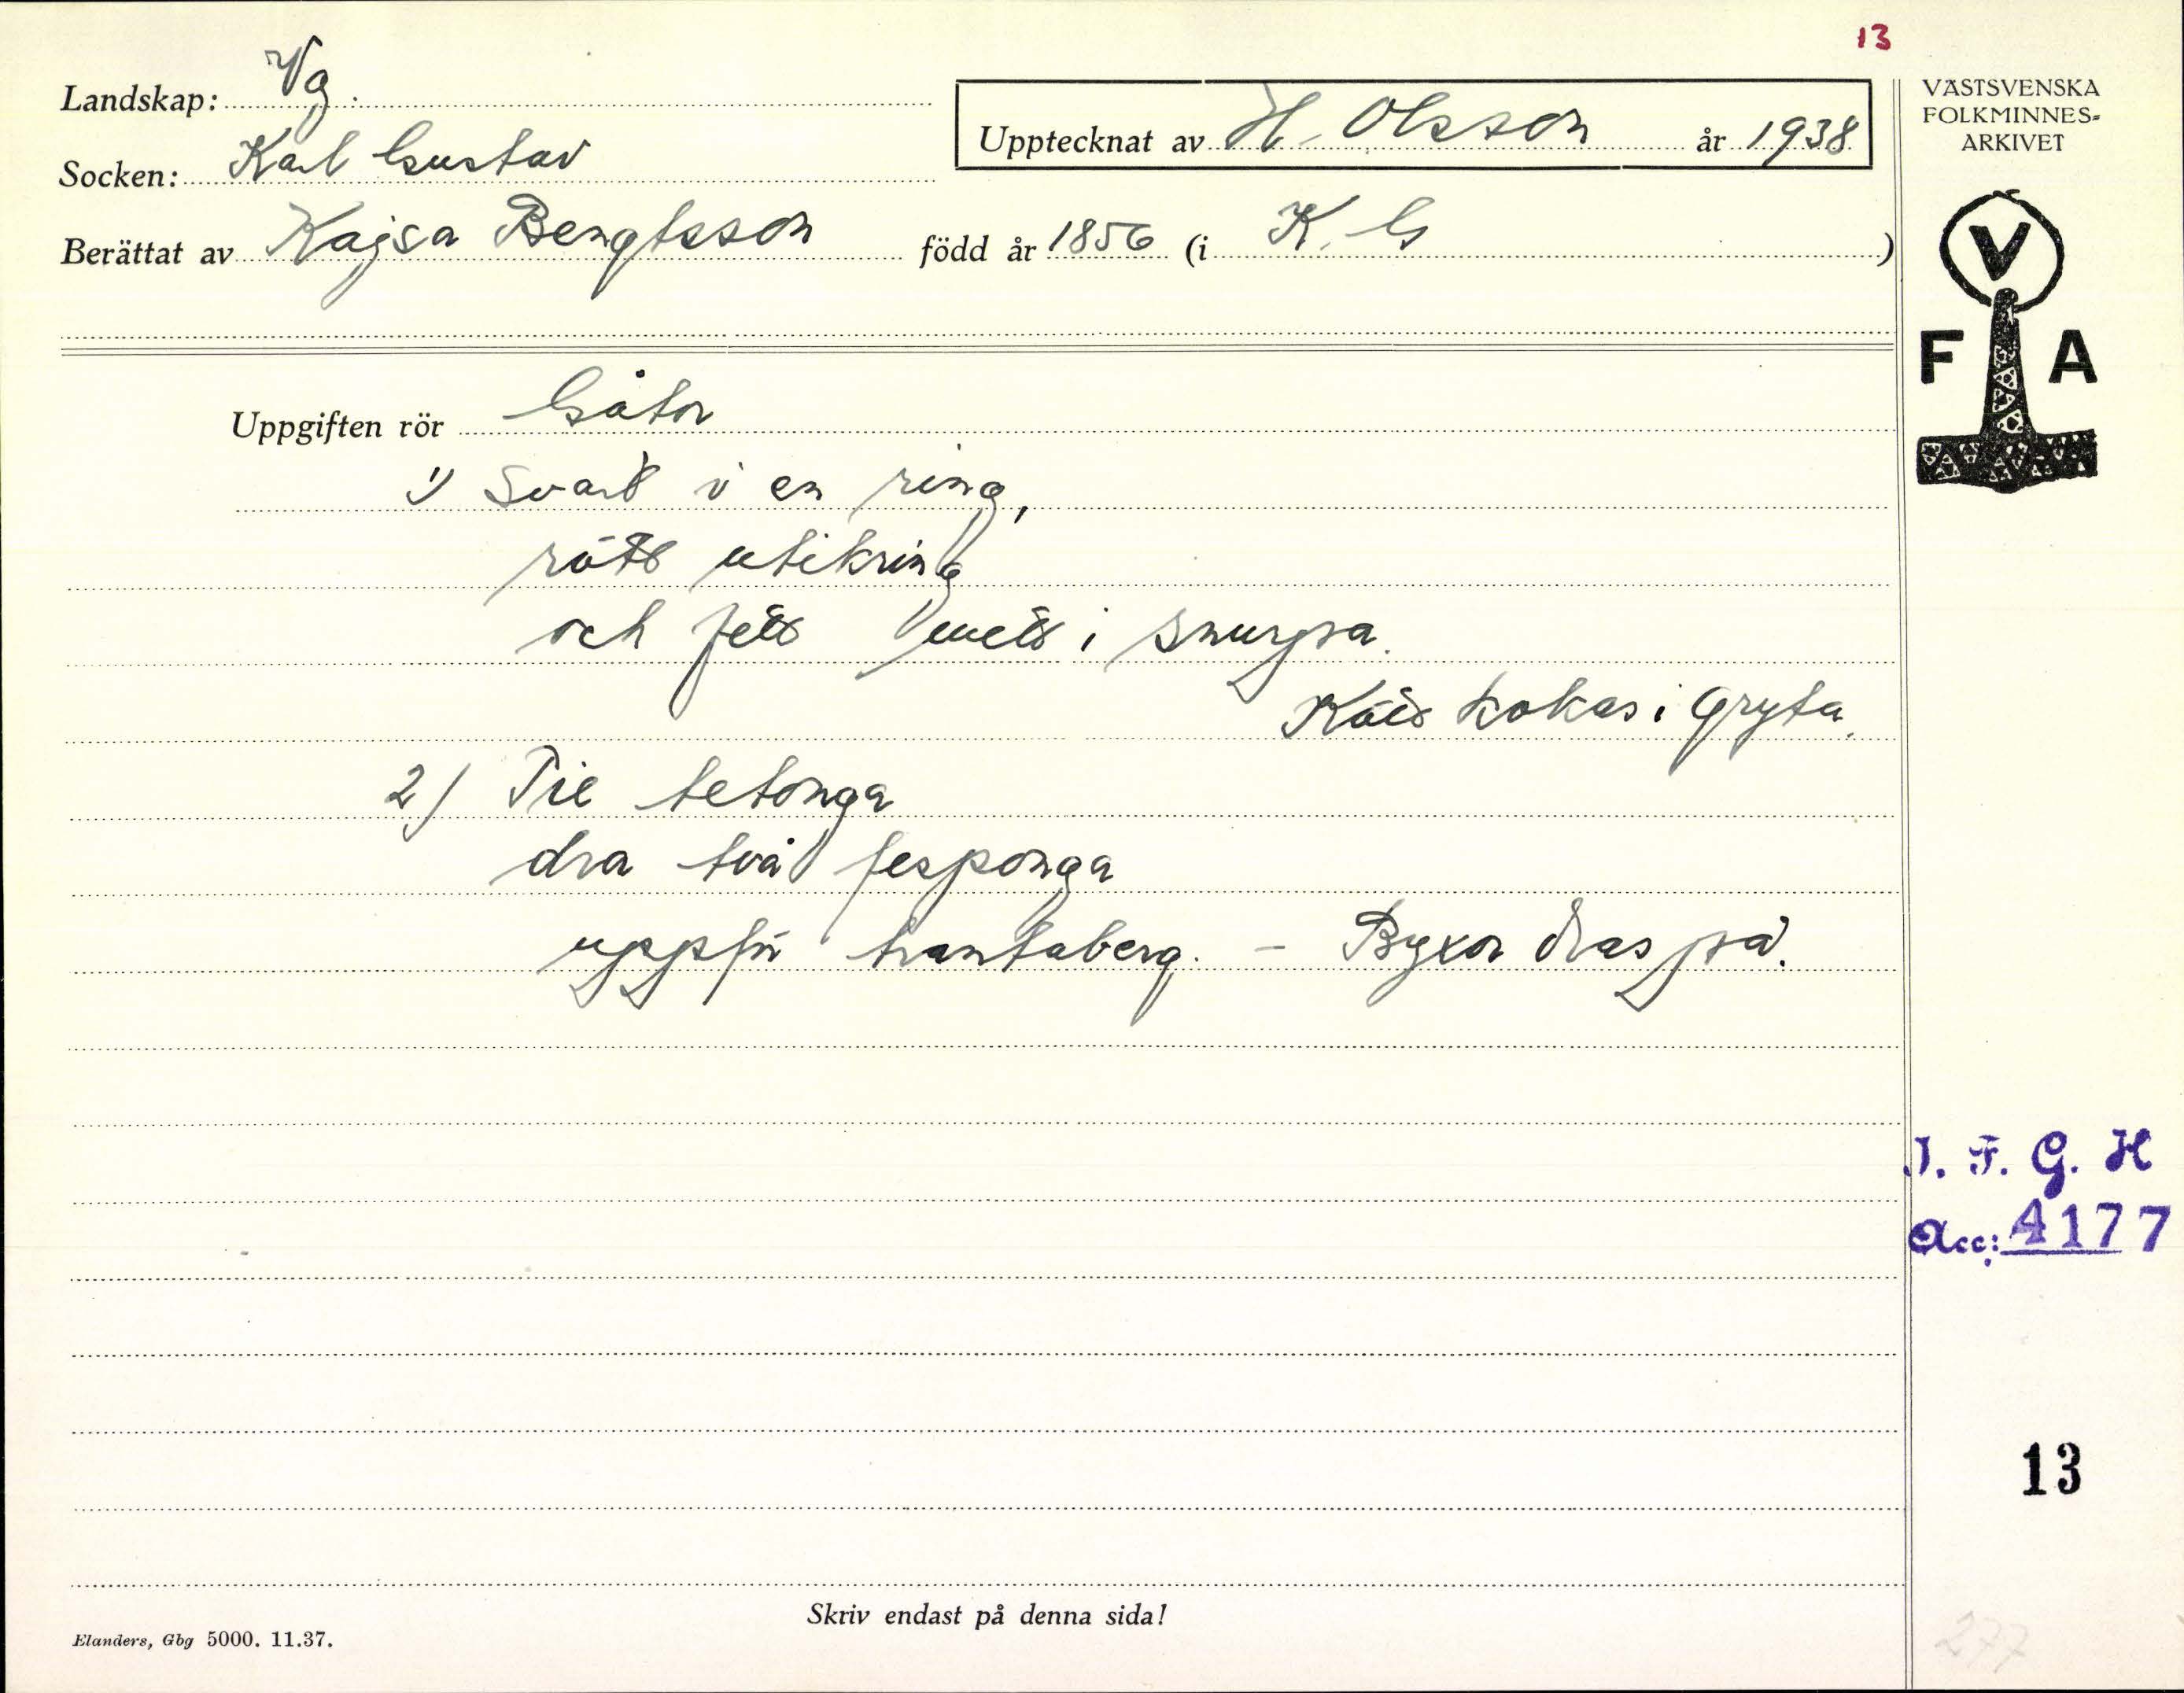 13
Landskap: Vg.
Socken: Karl Gustav
Upptecknat av H. Olsson år 1938
Berättat av Kajsa Bengtsson född år 1856 (i K. G )
VÄSTSVENSKA
FOLKMINNES-
ARKIVET
V
F A
Uppgiften rör Gåtor
1) Svart i en ring,
rött utikring
och fett i snurpa.
kokas i gryta.
2) Tie tetonga
dra två fesponga
uppför hantaberg. - Byxor dras på.
I. F. G. H
Acc: 4177
13
Skriv endast på denna sida!
Elanders, Gbg 5000. 11.37.
277